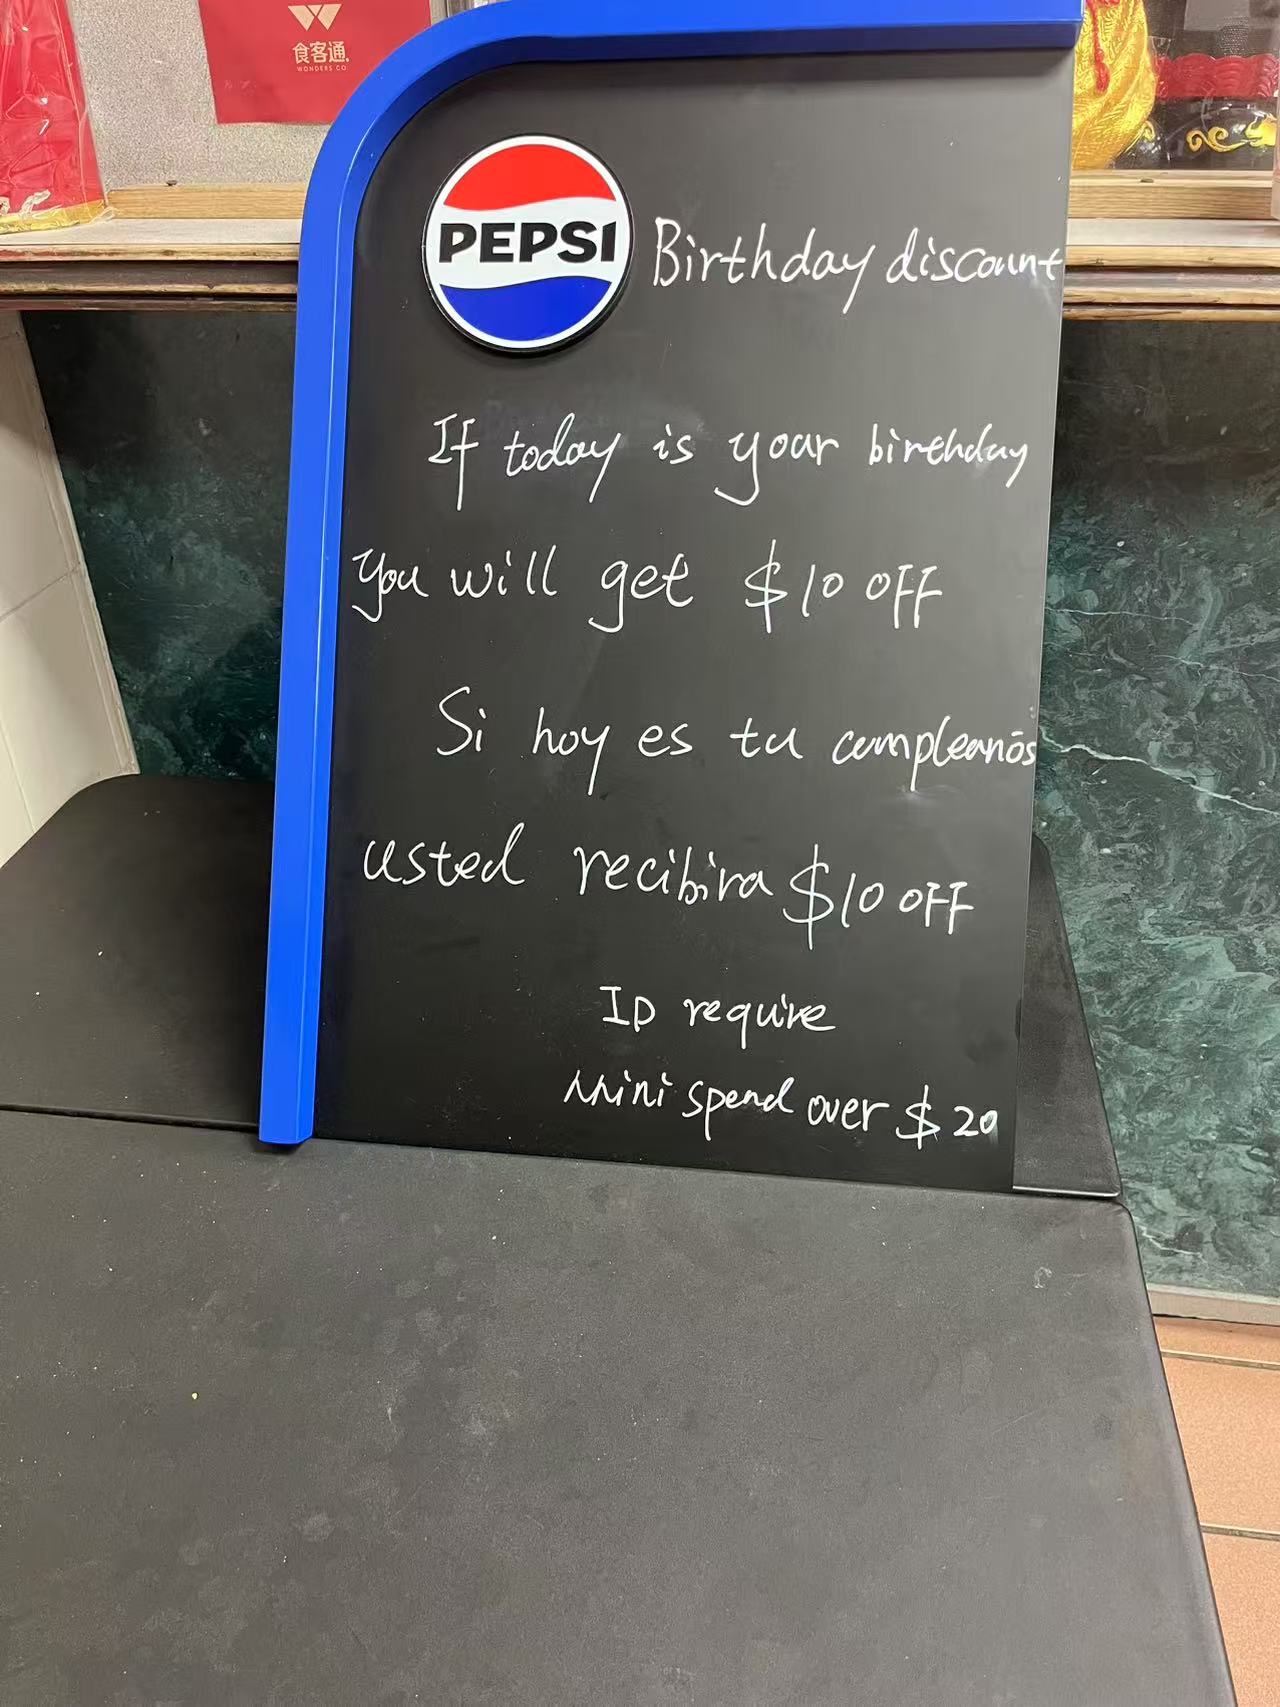 食客通
WONDERS CO
PEPSI
Birthday discount
If today is your birthday
you will get $10 OFF
Si hoy es tu cumpleanōs
usted recibira $10 OFF
ID require
Mini spend over $20